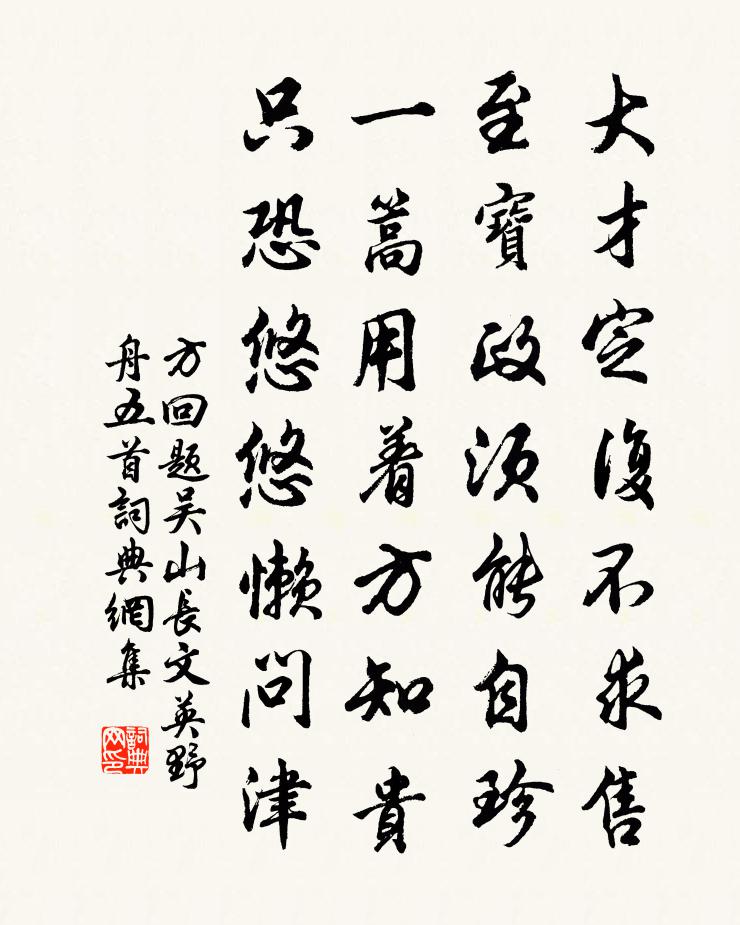 大才定復不求售
至寶政須能自珍
一篙用着方知貴
只恐悠悠懶問津
方回題吴山長文英野
舟五首詞典網集
詞典网印